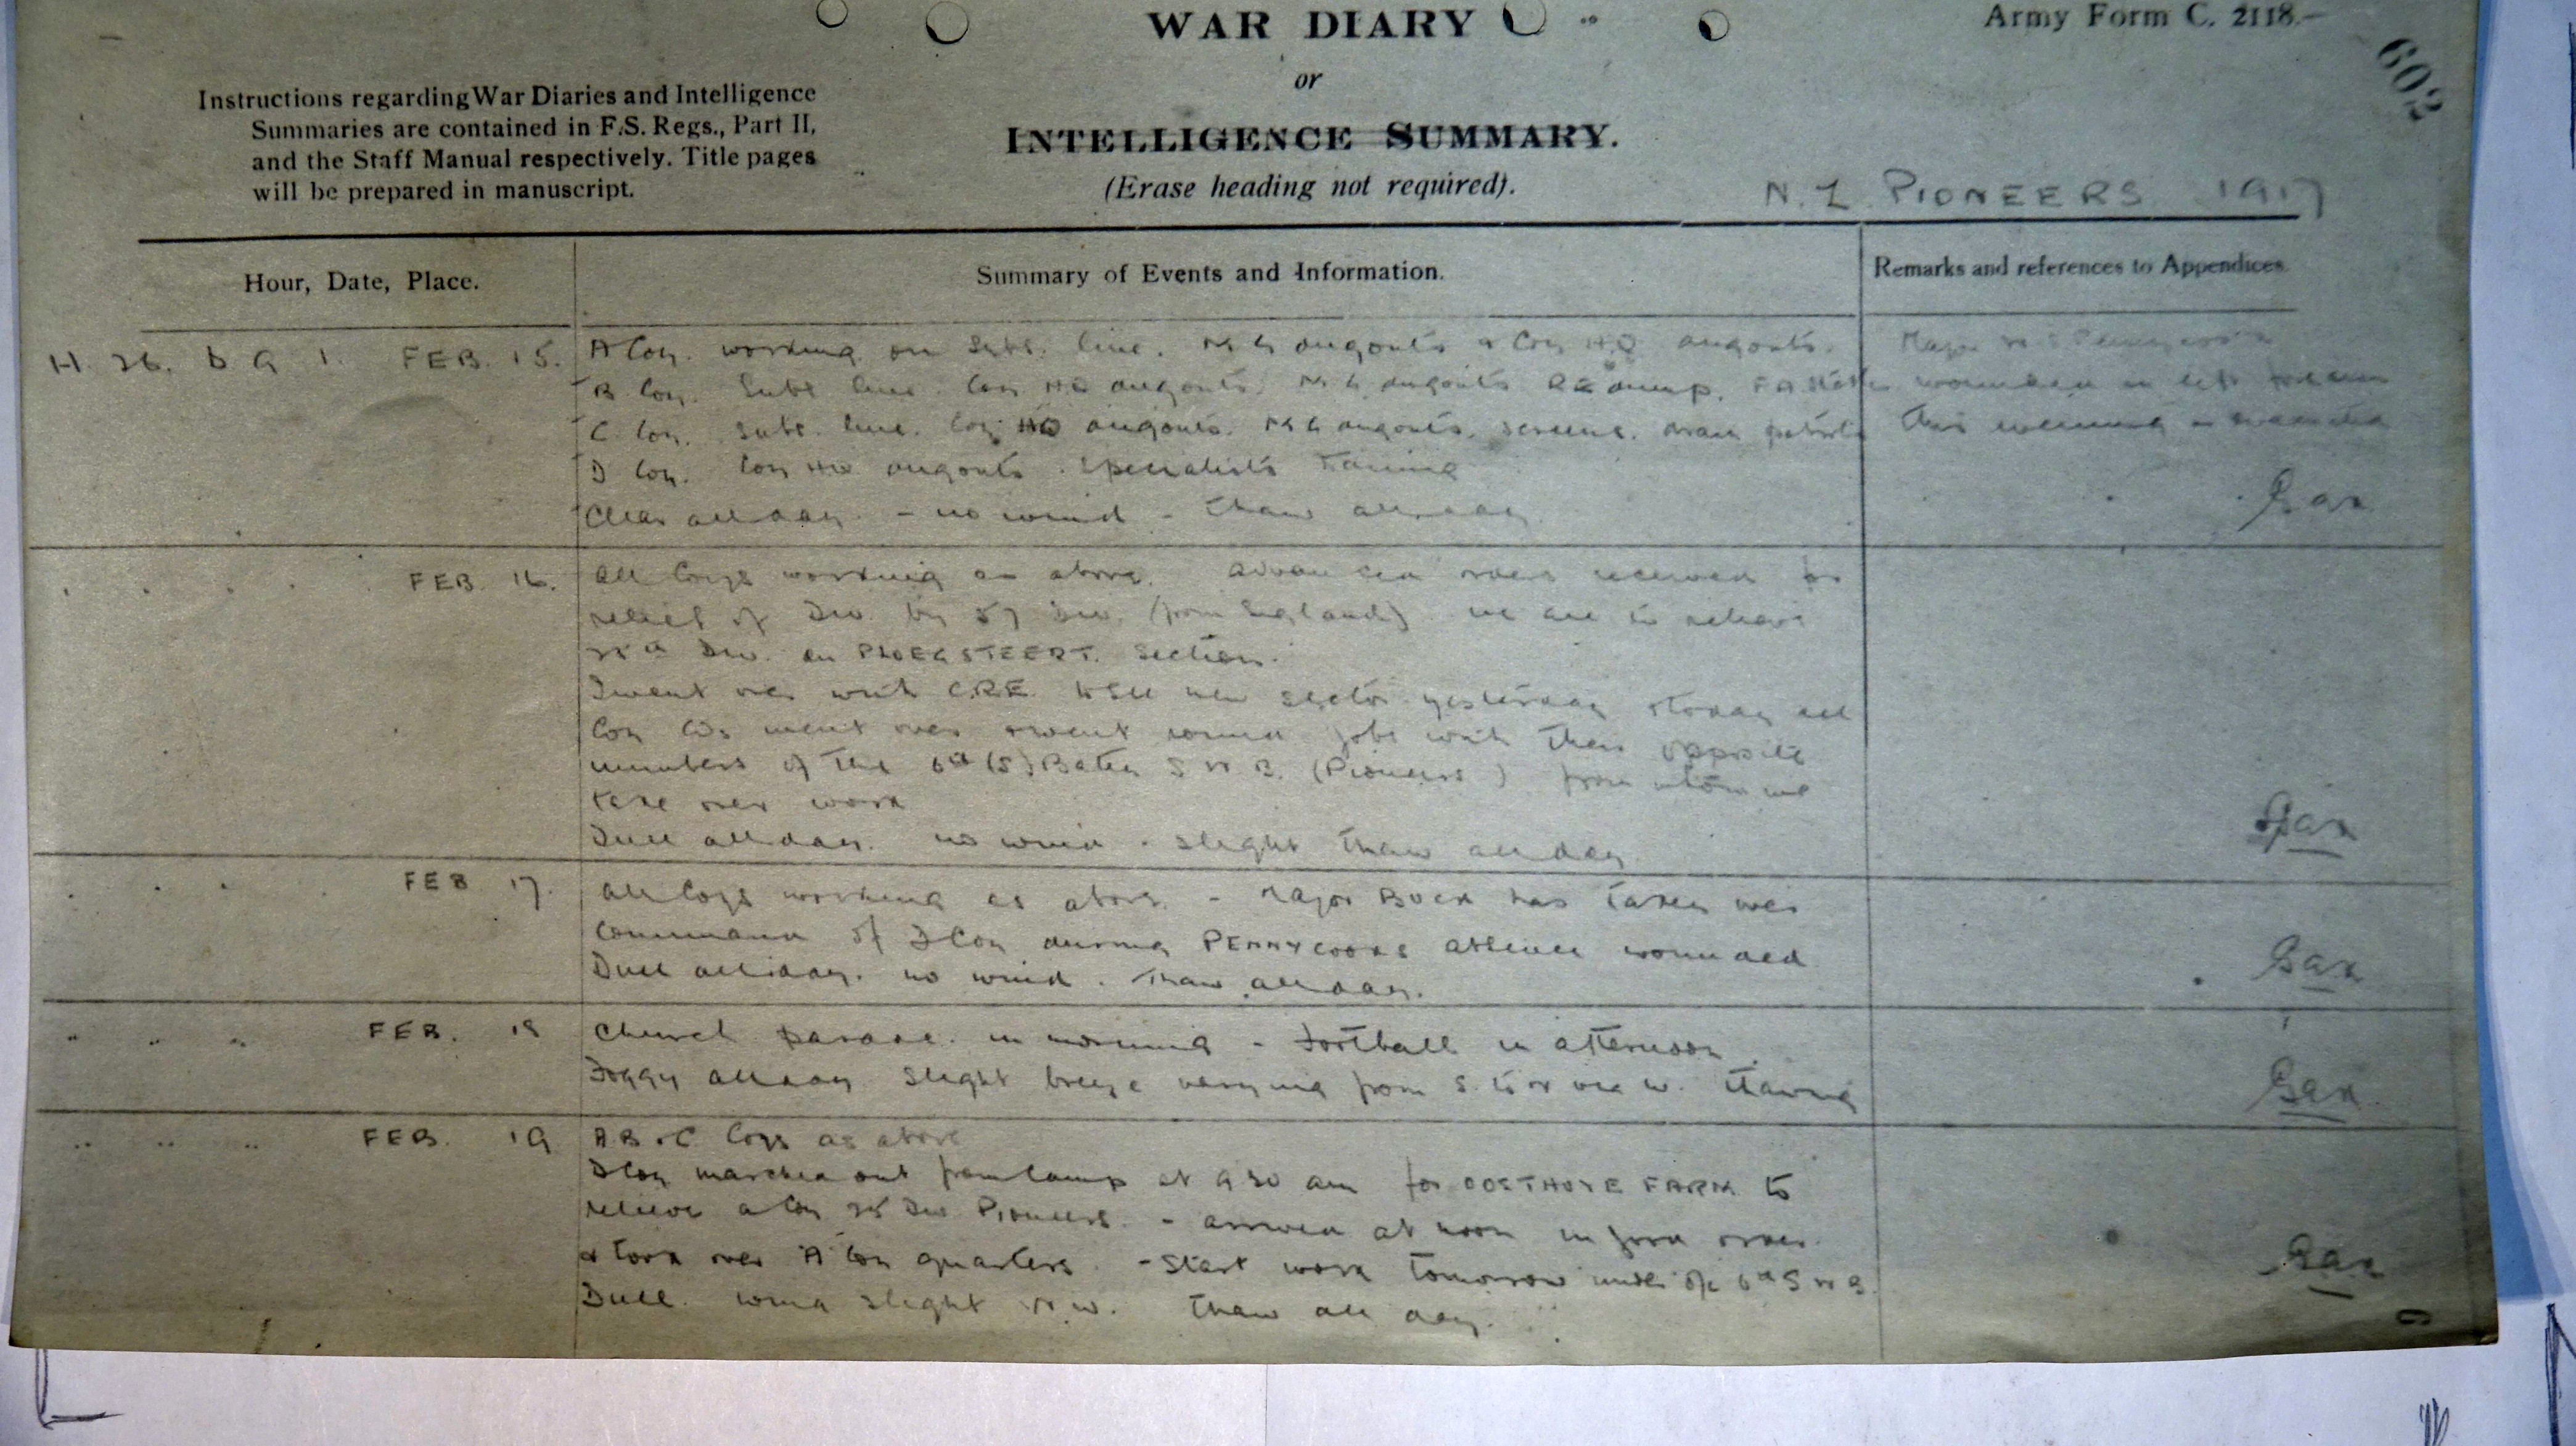 WAR DIARY
Army Form C. 2118.
602
or
Instructions regarding War Diaries and Intelligence
Summaries are contained in F.S. Regs., Part II,
and the Staff Manual respectively. Title pages
will be prepared in manuscript.
INTELLIGENCE SUMMARY.
(Erase heading not required).
N. Z. PIONEERS 1917
Hour, Date, Place.
Summary of Events and Information.
Remarks and references to Appendices.
H. 26. b 9 1. FEB. 15.
A Coy. working on Subs. line. M G dugouts & Coy HQ dugouts.
B Coy. Subs line. Coy HQ dugouts. M G dugouts RE dump.
C Coy. Subs. line. Coy HQ dugouts. M G dugouts. screens. drain patrols
D Coy. Coy HQ dugouts. Specialists Training
Clear all day - no wind - thaw all day
Major Pennycook
wounded in left forearm
this evening &
" " " " FEB. 16.
All Coys working as above. Advanced orders received for
relief of Div. by 57 Div. (from England) we are to relieve
25th Div. in PLOEGSTEERT. Section.
I went over with C.R.E. to see new sector yesterday & today all
Coy COs went over & went round jobs with their opposite
numbers of the 6th (S) Batn S W B. (Pioneers) from whom we
take over work
Dull all day. no wind. slight thaw all day
FEB 17.
All Coys working as above. - Major BUCK has taken over
command of D Coy during PENNYCOOKS absence wounded
Dull all day. no wind. Thaw all day.
" " " FEB. 18
Church parade. in morning - Football in afternoon.
Foggy all day slight breeze varying from S. to N via W. thawing
" " " FEB. 19
A B & C Coys as above
D Coy marched out from Camp at 9 30 am for OOSTHOVE FARM to
relieve a Coy 25 Div Pioneers. - arrived at noon in good order
& took over A Coy quarters - Start work tomorrow under o/c 6th S W B.
Dull. wind slight N.W. Thaw all day.